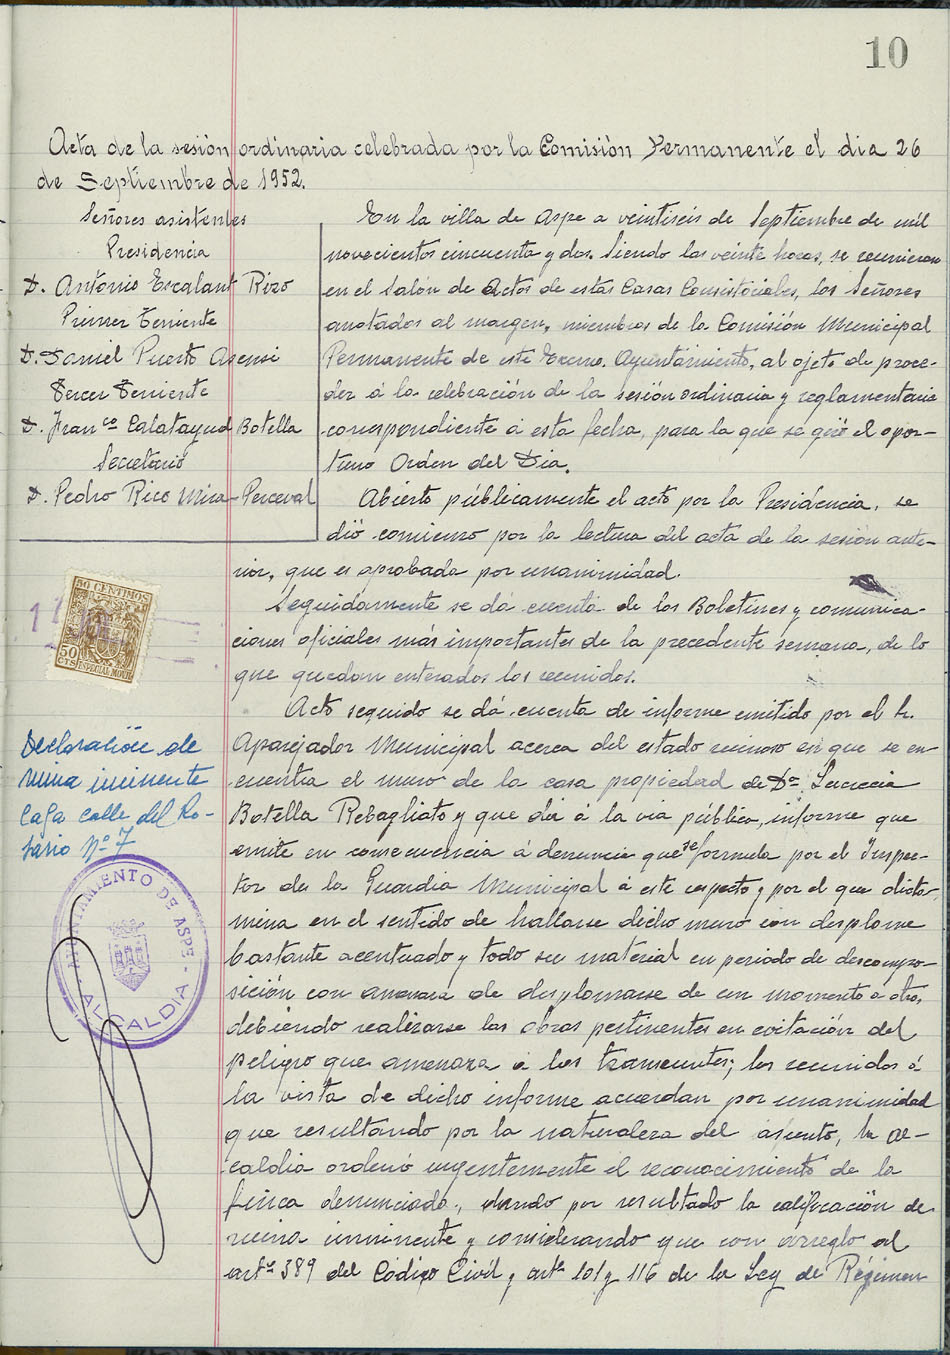 10
Acta de la sesión ordinaria celebrada por la Comisión Permanente el dia 26
de Septiembre de 1952.
Señores asistentes
Presidencia
D. Antonio Escalant Rizo
Primer Teniente
D. Daniel Puerto Asensi
Tercer Teniente
D. Franco Calatayud Botella
Secretario
D. Pedro Rico Mira-Perceval
En la villa de Aspe a veintiseis de Septiembre de mil
novecientos cincuenta y dos. Siendo las veinte horas, se reunieron
en el Salón de Actos de estas Casas Consistoriales, los Señores
anotados al margen, miembros de la Comisión Municipal
Permanente de este Excmo. Ayuntamiento, al objeto de proce-
der á la celebración de la sesión ordinaria y reglamentaria
correspondiente á esta fecha, para la que se giró el opor-
tuno Orden del Dia.
Abierto públicamente el acto por la Presidencia, se
dió comienzo por la lectura del acta de la sesión ante-
rior, que es aprobada por unanimidad.
Seguidamente se dá cuenta de los Boletines y comunica-
ciones oficiales más importantes de la precedente semana, de lo
que quedan enterados los reunidos.
50 CENTIMOS
50 CTS ESPECIAL MOVIL
Declaración de
ruina inminente
casa calle del Ro-
sario Nº 7
AYUNTAMIENTO DE ASPE
ALCALDIA
Acto seguido se dá cuenta de informe emitido por el Sr.
Aparejador Municipal acerca del estado ruinoso en que se en
cuentra el muro de la casa propiedad de Dª Lucrecia
Botella Rebagliato y que dá á la via pública, informe que
emite en consecuencia á denuncia que se formula por el Inspec-
tor de la Guardia Municipal á este respecto y por el que dicta-
mina en el sentido de hallarse dicho muro con desplome
bastante acentuado y todo su material en periodo de descompo-
sición con amenaza de desplomarse de un momento á otro,
debiendo realizarse las obras pertinentes en evitación del
peligro que amenaza a los transeuntes; los reunidos á
la vista de dicho informe acuerdan por unanimidad
que resultando por la naturaleza del asunto, la Al-
caldia ordenó urgentemente el reconocimiento de la
finca denunciada, dando por resultado la calificación de
ruina inminente y considerando que con arreglo al
artº 389 del Código Civil y artº 101 y 116 de la Ley de Régimen